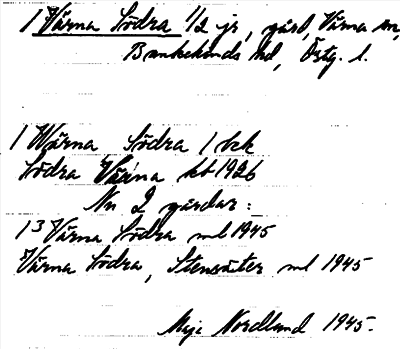 1 Värna Södra 1/2 jr, gård, Värna sn,
Bankekinds hd, Östg. l.
1 Wärna Södra 1 bzk
Södra Värna kt 1926
Nu 2 gårdar:
13 Värna Södra ml 1945
Värna Södra, Stensäter ml 1945
Maja Nordlund 1945.